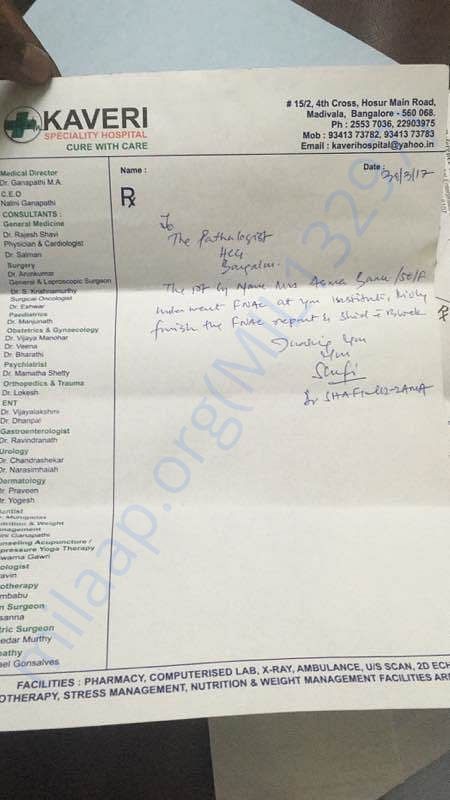 KAVERI
SPECIALITY HOSPITAL
CURE WITH CARE
# 15/2, 4th Cross, Hosur Main Road,
Madivala, Bangalore - 560 068.
Ph : 2553 7036, 22903975
Mob : 93413 73782, 93413 73783
Email : kaverihospital@yahoo.in
Medical Director
Dr. Ganapathi M.A.
C.E.O
Nalini Ganapathi
CONSULTANTS :
General Medicine
Dr. Rajesh Shavi
Physician & Cardiologist
Dr. Salman
Surgery
Dr. Arunkumar
General & Laproscopic Surgeon
Dr. S. Krishnamurthy
Surgical Oncologist
Dr. Eshwar
Paediatrics
Dr. Manjunath
Obstetrics & Gynaecology
Dr. Vijaya Manohar
Dr. Veena
Dr. Bharathi
Psychiatrist
Dr. Mamatha Shetty
Orthopedics & Trauma
Dr. Lokesh
ENT
Dr. Vijayalakshmi
Dr. Dhanpal
Gastroenterologist
Dr. Ravindranath
Urology
Dr. Chandrashekar
Dr. Narasimhaiah
Dermatology
Dr. Praveen
Dr. Yogesh
Weight
Ganapathi
unseling Acupuncture /
pressure Yoga Therapy
Gawri
ologist
avin
otherapy
mbabu
n Surgeon
sanna
tric Surgeon
edar Murthy
pathy
el Gonsalves
Name :
Date :
Rx
To
The Pathologist
HCG
Bangalore.
The pt by Name Mrs Asma Banu /50/F
underwent FNAC at your Institute, kindly
furnish the FNAC report &
Thanking You
Your
Shafi
Dr SHAFIULLA
milaap.org(MIL13297
FACILITIES : PHARMACY, COMPUTERISED LAB, X-RAY, AMBULANCE, U/S SCAN, 2D ECH
OTHERAPY, STRESS MANAGEMENT, NUTRITION & WEIGHT MANAGEMENT FACILITIES AR